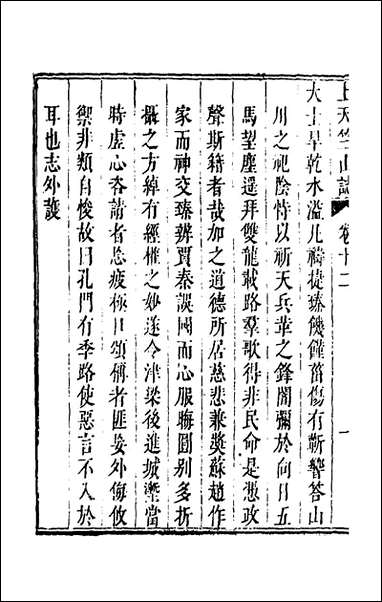 上天竺山志 卷十二 一
大士旱乾水溢凡禱捷臻饑饉菑傷有蘄響答山
川之祀陰恃以祈天兵葦之鋒闇彌於向日五
馬望塵遥拜雙龍戢路羣歌得非民命是憑政
聲斯籍者哉加之道德所居慈悲兼奬蘇趙作
家而神交臻辨賈秦誤國而心服晦圓别多折
攝之方綽有經權之妙遂令津梁後進城壍當
時虚心咨請者忘疲極口頌稱者匪妄外侮攸
禦非類自悛故曰孔門有季路使惡言不入於
耳也志外護